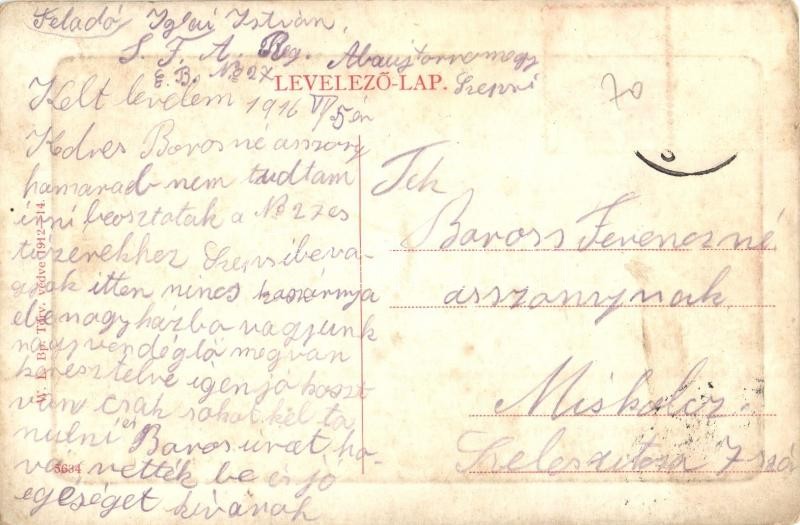 Feladó Iglai István
S. F. A. Reg. Abaujtornamegy
E. B. No 27 Szepsi
LEVELEZŐ-LAP.
70
Kelt levelem 1916 VI/5 én
Kdres Borosné asszony
hamarab nem tudtam
irni beosztotak a No 27es
tüzerekhez Szepsibe va-
gyok itten nincs kaszárnya
nagy házba vagyunk
nagy vendéglő megvan
keresztelve igen jó koszt
van csak sokat kel ta
nulni és Boros urat ho-
va vették be és jó
egéséget kívánok
Tek
Boross Ferenczné
asszonynak
Miskolcz
7 szám
W. L. Bp. Törv. védve 1912-14.
5634